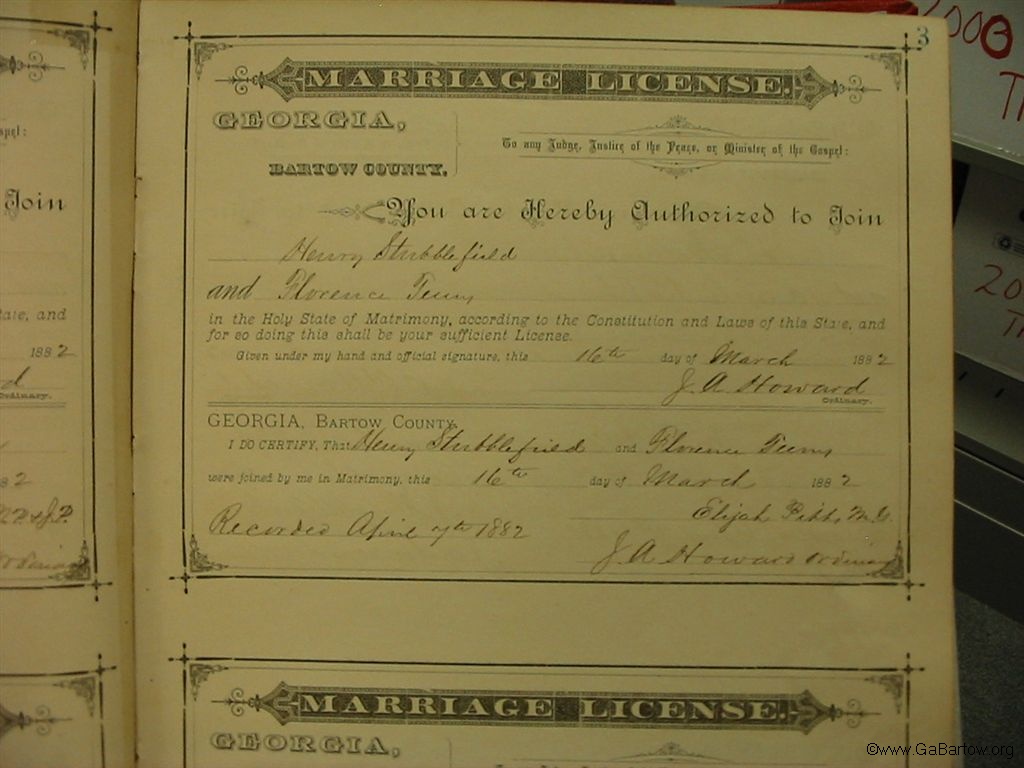 3
MARRIAGE LICENSE.
GEORGIA,
BARTOW COUNTY.
To any Judge, Justice of the Peace, or Minister of the Gospel:
You are Hereby Authorized to Join
Henry Stubblefield
and Florence
in the Holy State of Matrimony, according to the Constitution and Laws of this State, and
for so doing this shall be your sufficient License.
Given under my hand and official signature, this 16th day of March 1882
J. A. Howard
Ordinary.
GEORGIA, BARTOW COUNTY.
I DO CERTIFY, That Henry Stubblefield and Florence
were joined by me in Matrimony, this 16th day of March 1882
Elijah M.G.
Recorded April 7th 1882
J A Howard Ordinary
MARRIAGE LICENSE.
GEORGIA,
Join
tate, and
1882
d
Ordinary.
82
2003
20
©www.GaBartow.org